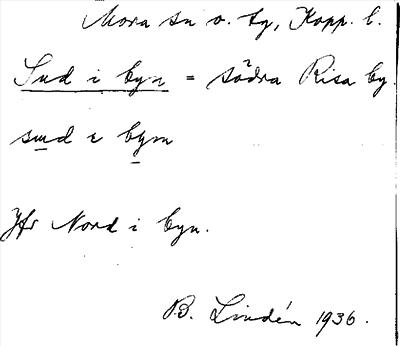 Mora sn o. tg, Kopp. l.
Sud i byn = södra Risa by.
sud ɛ bym
Jfr Nord i byn.
B. Lindén 1936.